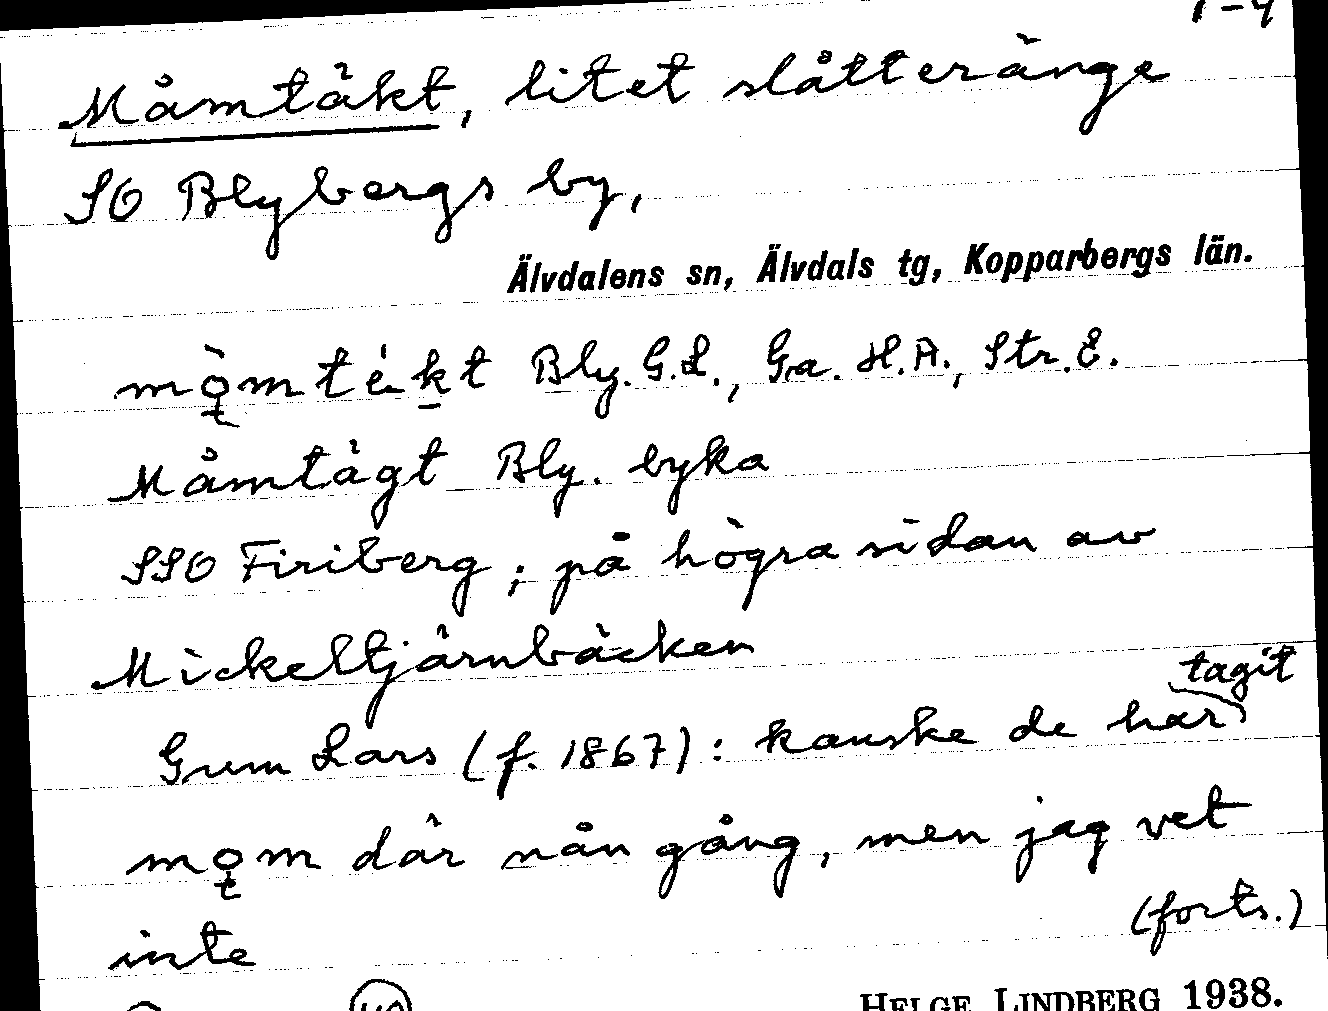 Måmtäkt, litet slåtteränge
SO Blybergs by,
Älvdalens sn, Älvdals tg, Kopparbergs län.
Bly. G.L., Ga. H.A., Str. E.
Måmtägt Bly. byka
SSO Firiberg; på högra sidan av
Mickeltjärnbäcken
tagit
Gum Lars (f. 1867): kanske de har
mǫm där nån gång, men jag vet
inte (forts.)
HELGE LINDBERG 1938.